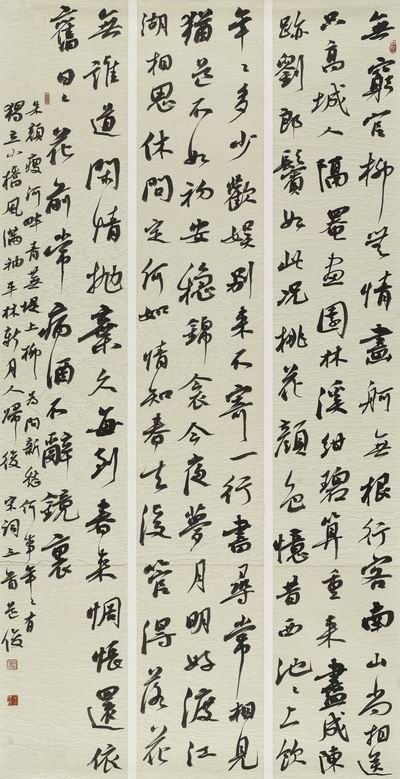 無窮官柳无情畫舸无根行客南山尚相送
只高城人隔罨畫園林溪紺碧算重來盡成陳
跡劉郎鬢如此況桃花顏色憶昔西池〻上飲
年〻多少歡娛別來不寄一行書尋常相見
猶道不如初安穩錦衾今夜夢月明好渡江
湖相思休問定何如情知春去後管得落花
無誰道閑情拋棄久每到春來惆悵還依
舊日〻花前常病酒不辭鏡裏
朱顏瘦河畔青蕪堤上柳為問新愁何事年〻有
獨立小橋風滿袖平林新月人歸後 宋詞三首 俊